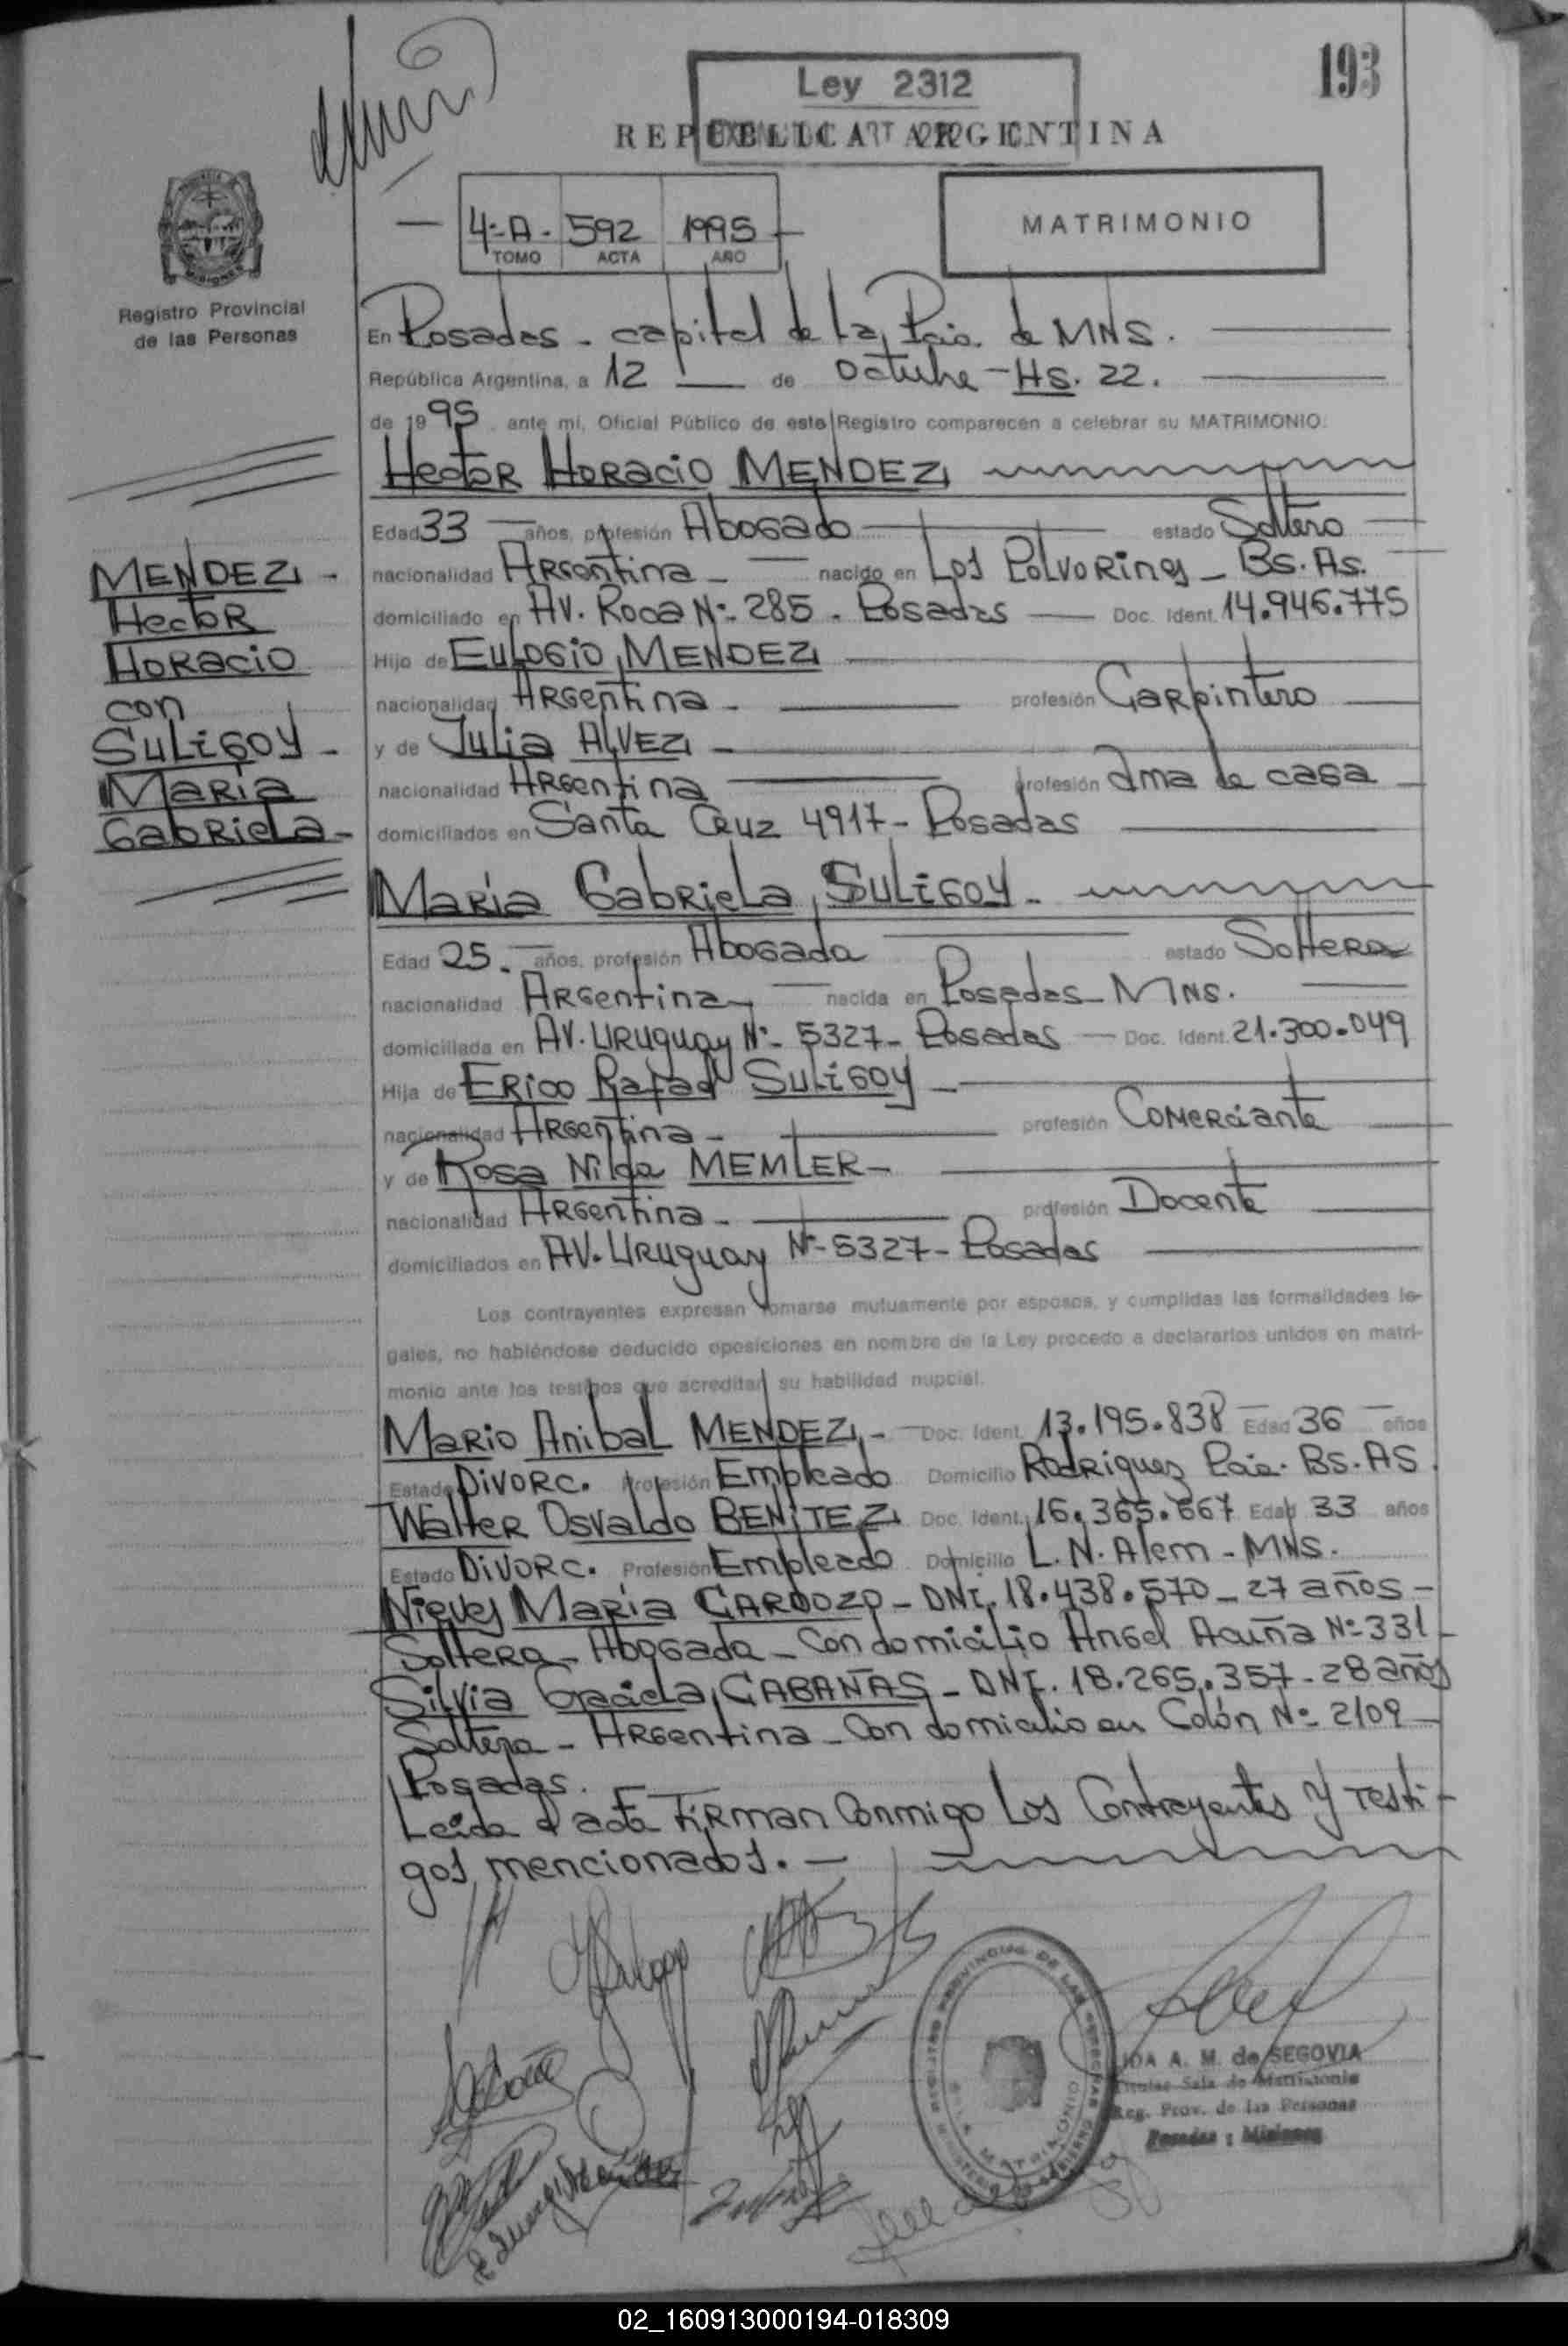 193
Ley 2312
REPUBLICA ARGENTINA
4-A- 592 1995
TOMO ACTA AÑO
MATRIMONIO
Registro Provincial
de las Personas
En Posadas - capital de la Pcia. de MNS.
República Argentina, a 12 de Octubre - Hs. 22.
de 1995 ante mi, Oficial Público de este Registro comparecen a celebrar su MATRIMONIO:
Hector Horacio MENDEZ
Edad 33 años, profesión Abogado estado Soltero
nacionalidad Argentina - nacido en Los Polvorines - Bs. As.
domiciliado en AV. Roca N:- 285 - Posadas Doc. Ident. 14.946.775
Hijo de EULOGIO MENDEZ
nacionalidad Argentina - profesión Carpintero
y de Julia ALVEZ -
nacionalidad Argentina profesión Ama de casa
domiciliados en Santa Cruz 4917 - Posadas
MENDEZ -
Hector
Horacio
con
SULIGOY -
María
Gabriela -
María Gabriela SULIGOY -
Edad 25. años, profesión Abogada estado Soltera
nacionalidad Argentina - nacida en Posadas - MNS.
domiciliada en AV. Uruguay N:- 5327 - Posadas Doc. Ident. 21.300.049
Hija de Erico Rafael SULIGOY -
nacionalidad Argentina - profesión Comerciante
y de Rosa Nilda MEMLER -
nacionalidad Argentina - profesión Docente
domiciliados en AV. Uruguay N:- 5327 - Posadas
Los contrayentes expresan tomarse mutuamente por esposos, y cumplidas las formalidades le-
gales, no habiéndose deducido oposiciones en nombre de la Ley procedo a declararlos unidos en matri-
monio ante los testigos que acreditan su habilidad nupcial.
Mario Anibal MENDEZ - Doc. Ident. 13.195.838 Edad 36 años
Estado Divorc. Profesión Empleado Domicilio Rodriguez Pcia. Bs. AS.
Walter Osvaldo BENITEZ Doc. Ident. 16.365.667 Edad 33 años
Estado Divorc. Profesión Empleado Domicilio L. N. Alem - MNS.
Nieves María CARDOZO - DNI. 18.438.570 - 27 años -
Soltera - Abogada - Con domicilio Angel Acuña N:- 331 -
Silvia Graciela CABAÑAS - DNI. 18.265.357 - 28 años
Soltera - Argentina - Con domicilio en Colón N:- 2109 -
Posadas.
Leida el acta Firman Conmigo Los Contrayentes y Testi-
gos mencionados. -
REGISTRO PROVINCIAL DE LAS PERSONAS
SALA MATRIMONIO
IDA A. M. de SEGOVIA
Titular Sala de Matrimonio
Reg. Prov. de las Personas
Posadas : Misiones
02_160913000194-018309